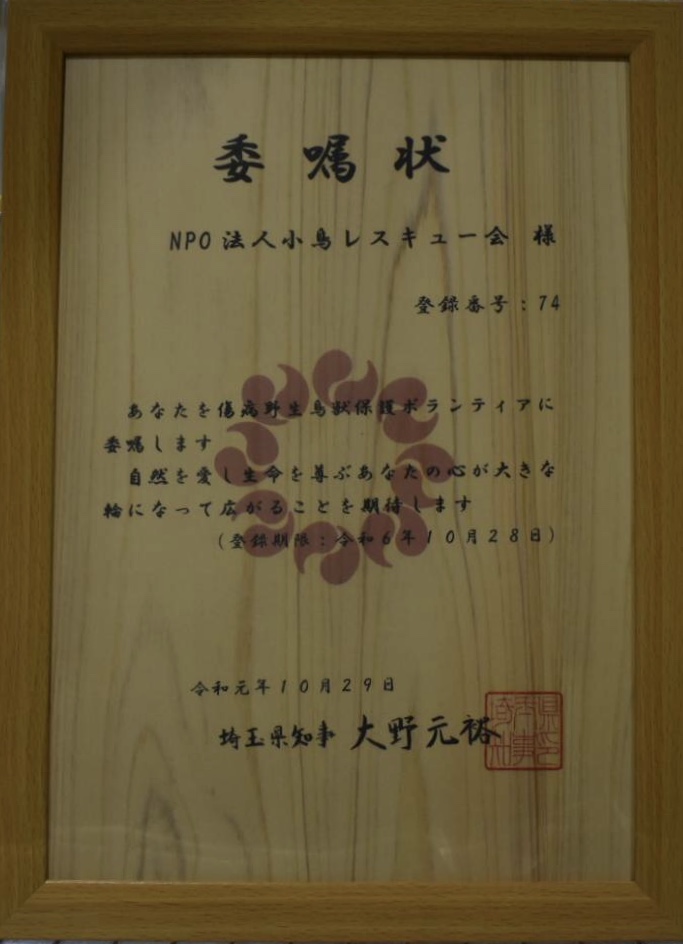 委嘱状
NPO法人小鳥レスキュー会 様
登録番号:74
あなたを傷病野生鳥獣保護ボランティアに
委嘱します
自然を愛し生命を尊ぶあなたの心が大きな
輪になって広がることを期待します
(登録期限:令和6年10月28日)
令和元年10月29日
埼玉県知事 大野元裕